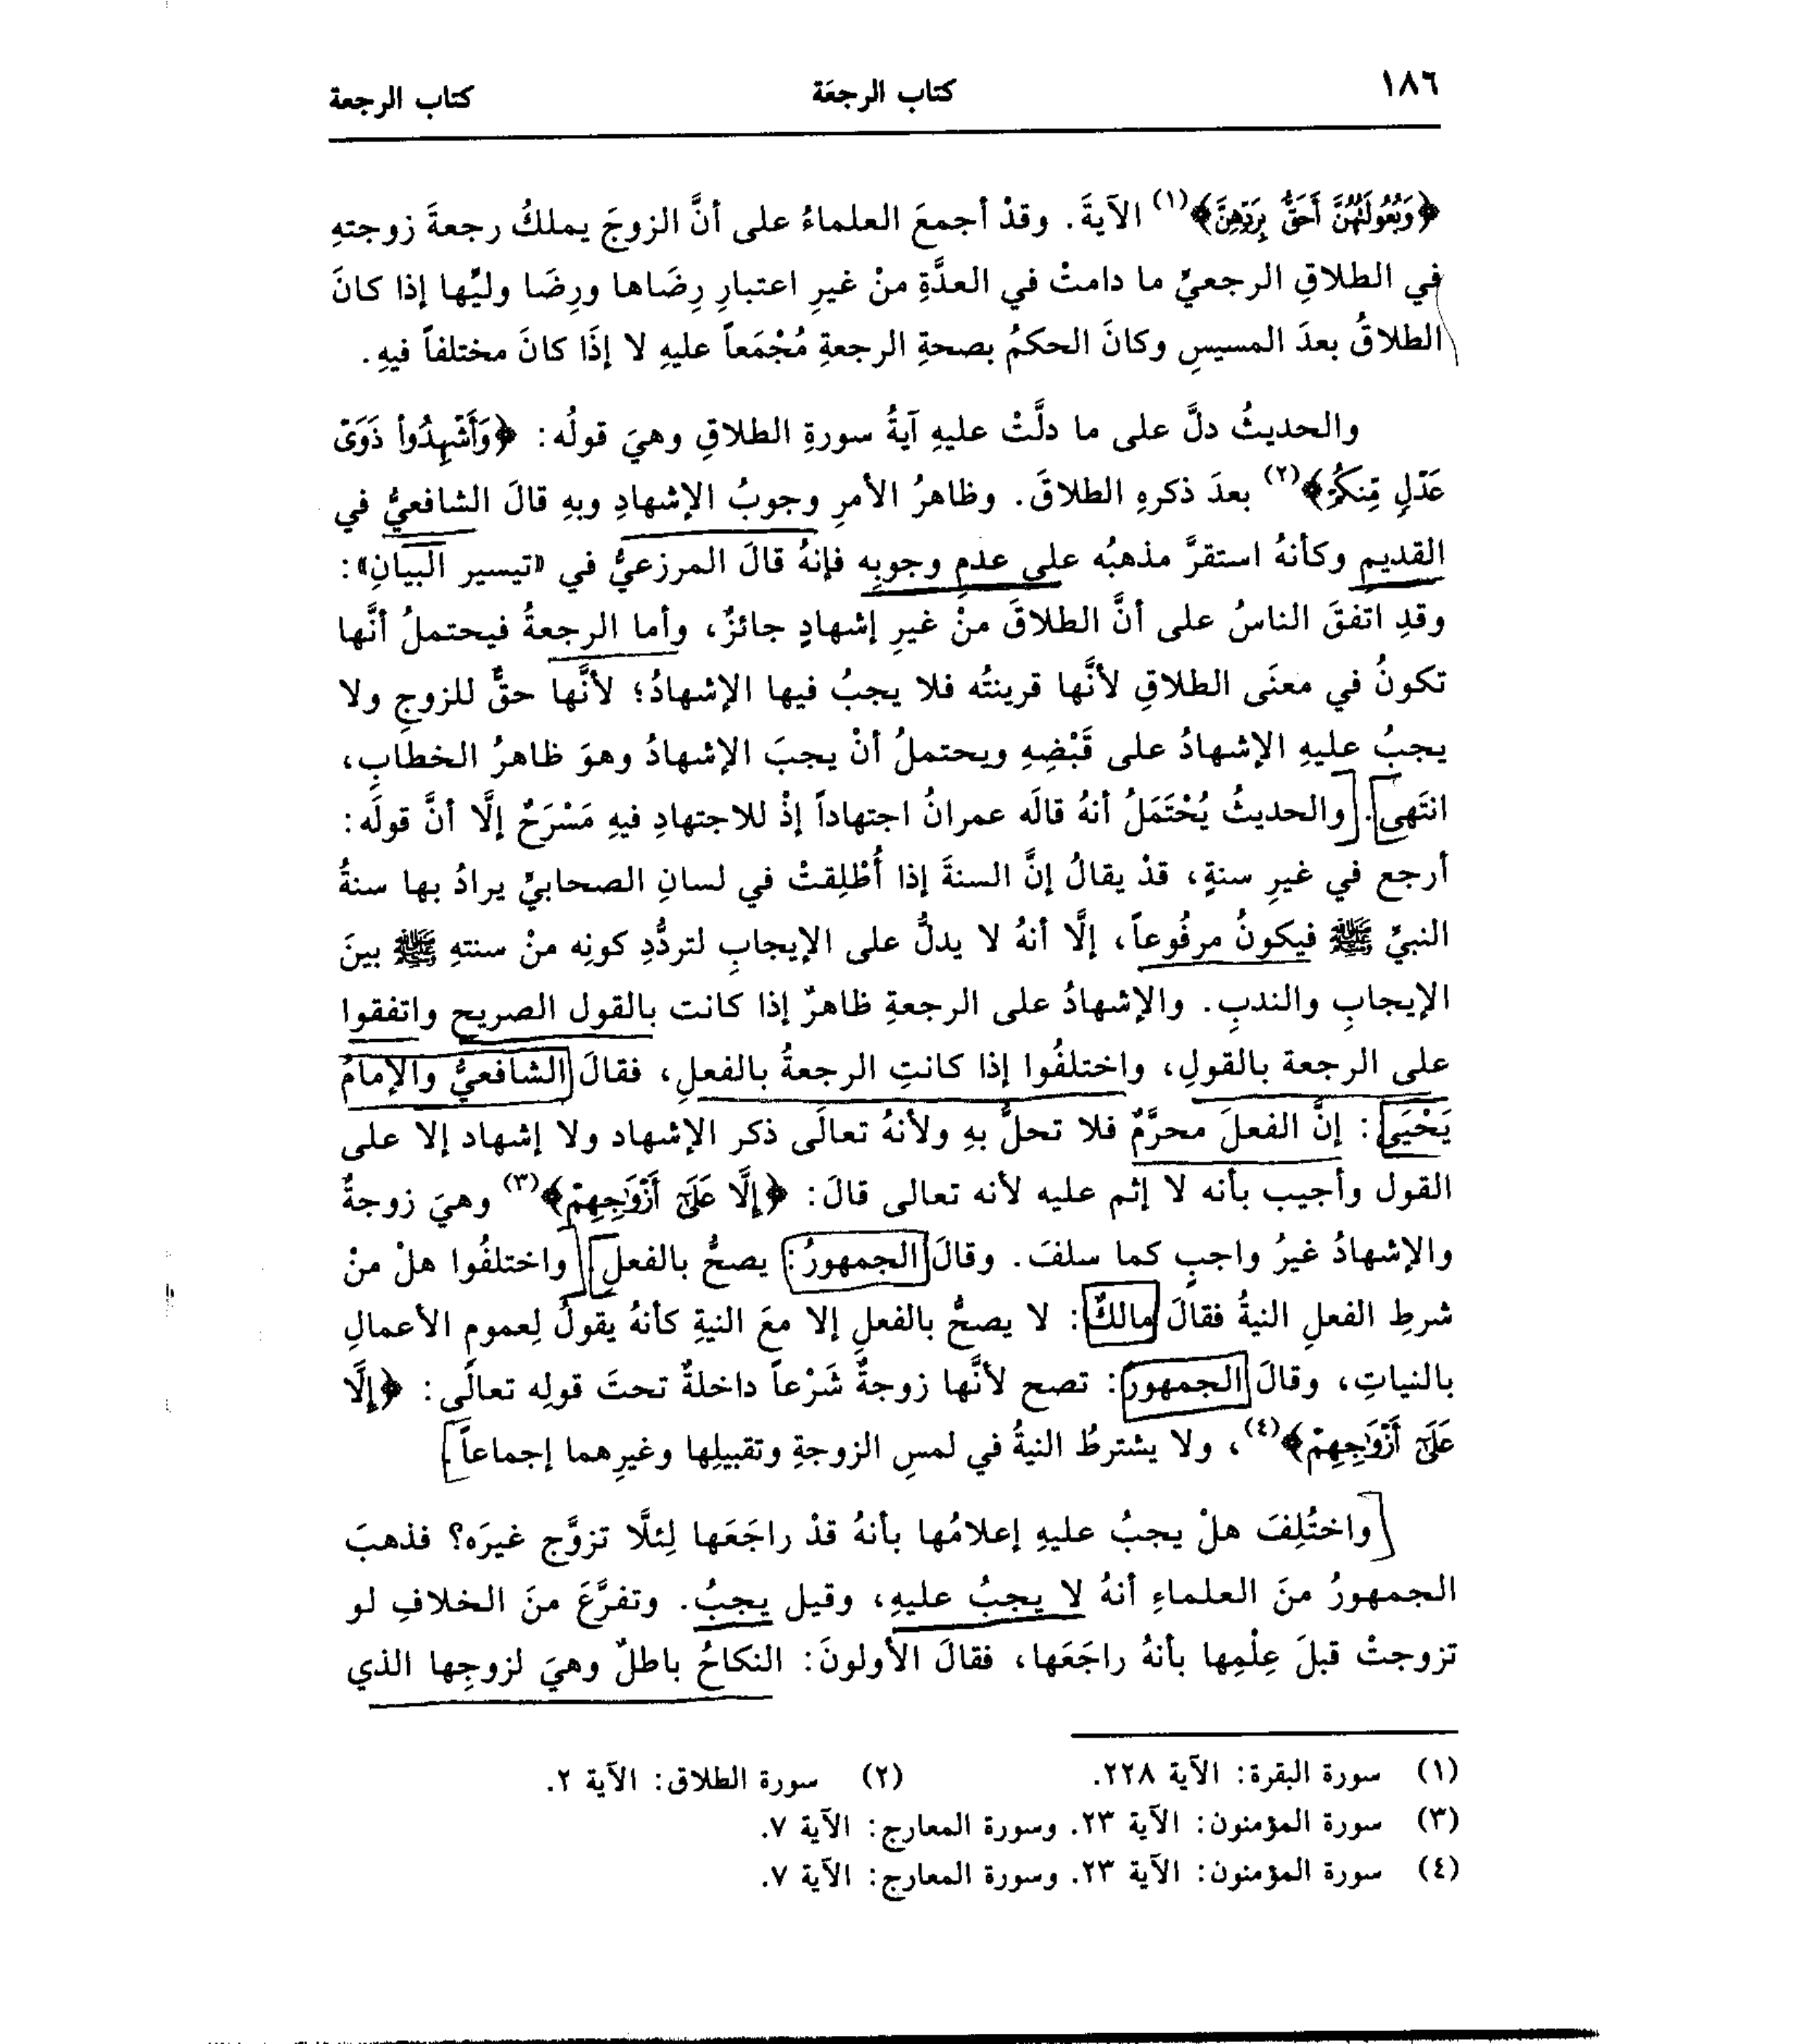 ١٨٦ كتاب الرجعَة كتاب الرجعة
﴿وَبُعُولَتُهُنَّ أَحَقُّ بِرَدِّهِنَّ﴾(١) الآيةَ. وقدْ أجمعَ العلماءُ على أنَّ الزوجَ يملكُ رجعةَ زوجتهِ
في الطلاقِ الرجعيِّ ما دامتْ في العدَّةِ منْ غيرِ اعتبارِ رِضَاها ورِضَا وليِّها إذا كانَ
الطلاقُ بعدَ المسيسِ وكانَ الحكمُ بصحةِ الرجعةِ مُجْمَعاً عليهِ لا إذَا كانَ مختلفاً فيهِ.
والحديثُ دلَّ على ما دلَّتْ عليهِ آيةُ سورةِ الطلاقِ وهيَ قولُه: ﴿وَأَشْهِدُواْ ذَوَىْ
عَدْلٍ مِّنكُمْ﴾(٢) بعدَ ذكرهِ الطلاقَ. وظاهرُ الأمرِ وجوبُ الإشهادِ وبهِ قالَ الشافعيُّ في
القديمِ وكأنهُ استقرَّ مذهبُه على عدمِ وجوبِه فإنهُ قالَ المرزعيُّ في «تيسير البيانِ»:
وقدِ اتفقَ الناسُ على أنَّ الطلاقَ منْ غيرِ إشهادٍ جائزٌ، وأما الرجعةُ فيحتملُ أنَّها
تكونُ في معنَى الطلاقِ لأنَّها قرينتُه فلا يجبُ فيها الإشهادُ؛ لأنَّها حقٌّ للزوجِ ولا
يجبُ عليهِ الإشهادُ على قَبْضِهِ ويحتملُ أنْ يجبَ الإشهادُ وهوَ ظاهرُ الخطابِ،
انتَهى. والحديثُ يُحْتَمَلُ أنهُ قالَه عمرانُ اجتهاداً إذْ للاجتهادِ فيهِ مَسْرَحٌ إلَّا أنَّ قولَه:
أرجع في غيرِ سنةٍ، قدْ يقالُ إنَّ السنةَ إذا أُطْلِقتْ في لسانِ الصحابيِّ يرادُ بها سنةُ
النبيِّ ﷺ فيكونُ مرفُوعاً، إلَّا أنهُ لا يدلُّ على الإيجابِ لتردُّدِ كونِه منْ سنتهِ ﷺ بينَ
الإيجابِ والندبِ. والإشهادُ على الرجعةِ ظاهرٌ إذا كانت بالقول الصريح واتفقوا
على الرجعة بالقولِ، واختلفُوا إذا كانتِ الرجعةُ بالفعلِ، فقالَ الشافعيُّ والإمامُ
يَحْيَى: إنَّ الفعلَ محرَّمٌ فلا تحلُّ بهِ ولأنهُ تعالَى ذكر الإشهاد ولا إشهاد إلا على
القول وأجيب بأنه لا إثم عليه لأنه تعالى قالَ: ﴿إِلَّا عَلَىٰٓ أَزْوَٰجِهِمْ﴾(٣) وهيَ زوجةٌ
والإشهادُ غيرُ واجبٍ كما سلفَ. وقالَ الجمهورُ: يصحُّ بالفعلِ. واختلفُوا هلْ منْ
شرطِ الفعلِ النيةُ فقالَ مالكٌ: لا يصحُّ بالفعلِ إلا معَ النيةِ كأنهُ يقولُ لِعمومِ الأعمالِ
بالنياتِ، وقالَ الجمهورُ: تصح لأنَّها زوجةٌ شَرْعاً داخلةٌ تحتَ قولِه تعالَى: ﴿إِلَّا
عَلَىٰٓ أَزْوَٰجِهِمْ﴾(٤)، ولا يشترطُ النيةُ في لمسِ الزوجةِ وتقبيلِها وغيرِهما إجماعاً.
واختُلِفَ هلْ يجبُ عليهِ إعلامُها بأنهُ قدْ راجَعَها لِئلَّا تزوَّج غيرَه؟ فذهبَ
الجمهورُ منَ العلماءِ أنهُ لا يجبُ عليهِ، وقيل يجبُ. وتفرَّعَ منَ الخلافِ لو
تزوجتْ قبلَ عِلْمِها بأنهُ راجَعَها، فقالَ الأولونَ: النكاحُ باطلٌ وهيَ لزوجِها الذي
(١) سورة البقرة: الآية ٢٢٨. (٢) سورة الطلاق: الآية ٢.
(٣) سورة المؤمنون: الآية ٢٣. وسورة المعارج: الآية ٧.
(٤) سورة المؤمنون: الآية ٢٣. وسورة المعارج: الآية ٧.